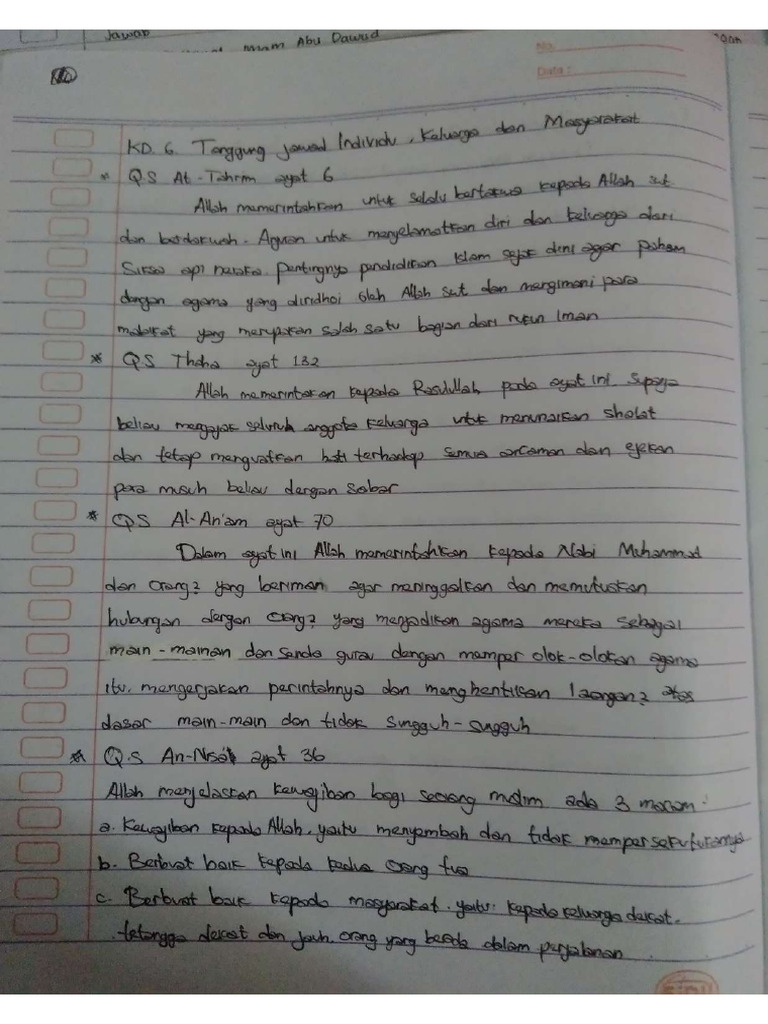 Jawab
Imam Abu Dawud
No.
Date :
KD. 6. Tanggung jawab Individu, Keluarga dan Masyarakat
* QS At-Tahrim ayat 6
Allah memerintahkan untuk selalu bertakwa kepada Allah swt
dan berdakwah. Anjuran untuk menyelamatkan diri dan keluarga dari
siksa api neraka. Pentingnya pendidikan Islam sejak dini agar paham
dengan agama yang diridhoi oleh Allah swt dan mengimani para
malaikat yang merupakan salah satu bagian dari rukun Iman
* QS Thaha ayat 132
Allah memerintakan kepada Rasulullah pada ayat ini supaya
beliau mengajak seluruh anggota keluarga untuk menunaikan sholat
dan tetap menguatkan hati terhadap semua ancaman dan ejekan
para musuh beliau dengan sabar
* QS Al-An'am ayat 70
Dalam ayat ini Allah memerintahkan kepada Nabi Muhammad
dan orang2 yang beriman agar meninggalkan dan memutuskan
hubungan dengan orang2 yang menjadikan agama mereka sebagai
main-mainan dan senda gurau dengan memper olok-olokan agama
itu. mengerjakan perintahnya dan menghentikan larangan2 atas
dasar main-main dan tidak sungguh-sungguh
* Q.S An-Nisa' ayat 36
Allah menjelaskan kewajiban bagi seorang muslim ada 3 macam :
a. Kewajiban kepada Allah, yaitu menyembah dan tidak mempersekutukannya
b. Berbuat baik kepada kedua orang tua
c. Berbuat baik kepada masyarakat. yaitu: kepada keluarga dekat.
tetangga dekat dan jauh, orang yang berada dalam perjalanan.